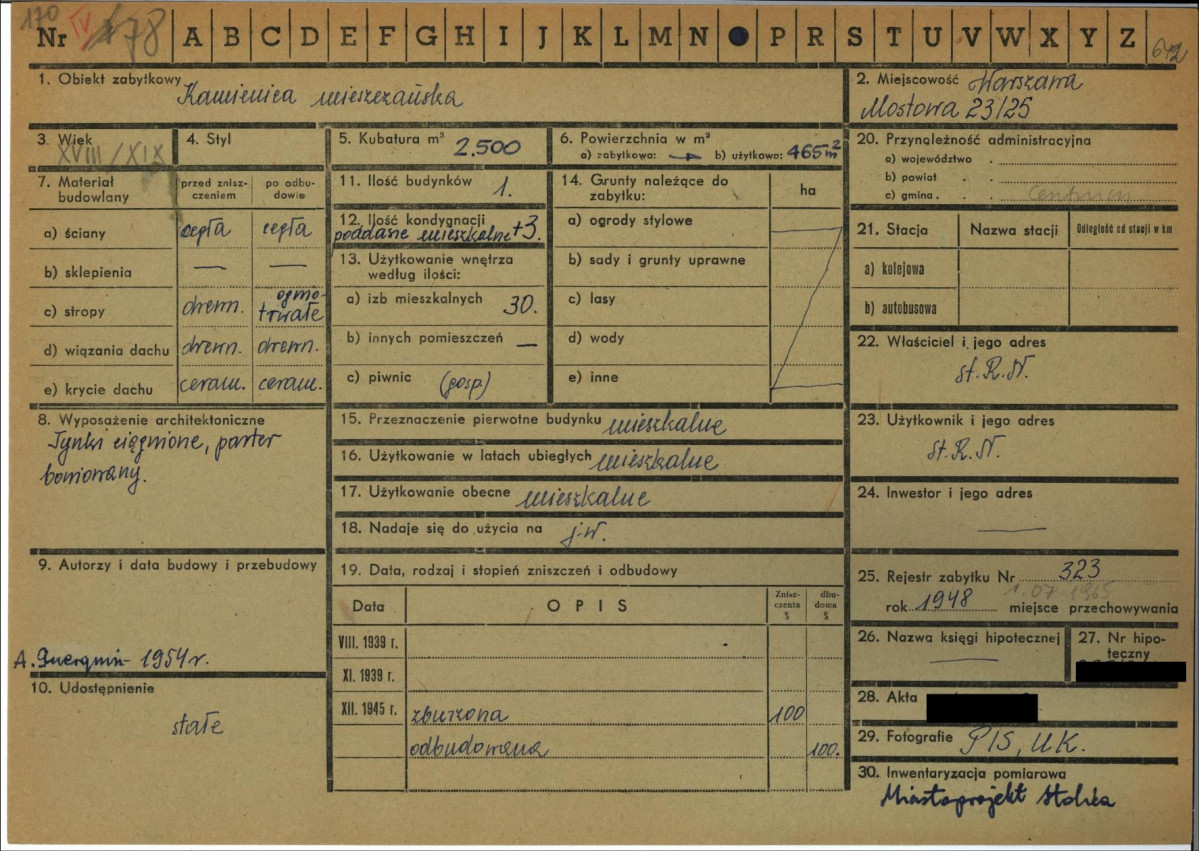 170
Nr IV 178 A B C D E F G H I J K L M N P R S T U V W X Y Z 612
1. Obiekt zabytkowy Kamienica mieszczańska
2. Miejscowość Warszawa
Mostowa 23/25
3. Wiek XVIII/XIX
4. Styl
5. Kubatura m³ 2.500
6. Powierzchnia w m²
a) zabytkowa: — b) użytkowa: 465 m²
7. Materiał budowlany
przed zniszczeniem
po odbudowie
a) ściany cegła cegła
b) sklepienia — —
c) stropy drewn. ogniotrwałe
d) wiązania dachu drewn. drewn.
e) krycie dachu ceram. ceram.
8. Wyposażenie architektoniczne
Tynki ciągnione, parter
boniowany.
9. Autorzy i data budowy i przebudowy
A. 1954 r.
10. Udostępnienie
stałe
11. Ilość budynków 1.
12. Ilość kondygnacji
poddasze mieszkalne +3.
13. Użytkowanie wnętrza
według ilości:
a) izb mieszkalnych 30.
b) innych pomieszczeń —
c) piwnic (gosp.)
14. Grunty należące do
zabytku:
ha
a) ogrody stylowe
b) sady i grunty uprawne
c) lasy
d) wody
e) inne
15. Przeznaczenie pierwotne budynku mieszkalne
16. Użytkowanie w latach ubiegłych mieszkalne
17. Użytkowanie obecne mieszkalne
18. Nadaje się do użycia na j.w.
19. Data, rodzaj i stopień zniszczeń i odbudowy
Data OPIS Zniszczenia % dbudowa %
VIII. 1939 r.
XI. 1939 r.
XII. 1945 r. zburzona 100
odbudowana 100.
20. Przynależność administracyjna
a) województwo
b) powiat
c) gmina Centrum
21. Stacja Nazwa stacji Odległość od stacji w km
a) kolejowa
b) autobusowa
22. Właściciel i jego adres
St. R. N.
23. Użytkownik i jego adres
St. R. N.
24. Inwestor i jego adres
—
25. Rejestr zabytku Nr 323
1.07.1965
rok 1948 miejsce przechowywania
26. Nazwa księgi hipotecznej
—
27. Nr hipoteczny
28. Akta
29. Fotografie PIS, UK.
30. Inwentaryzacja pomiarowa
Miastoprojekt Stolica